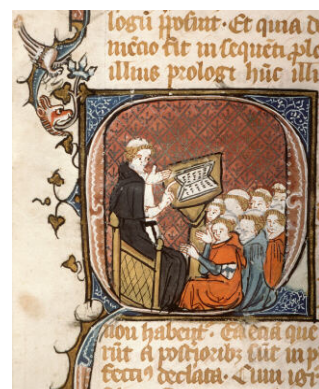 logū possint. Et quia d
mēcio fit in sequēti. ple
illius prologi hūc illu
non habent. Ea eā que
rūt a posterioribꝫ sūt in p
fecti declata. Cum igi